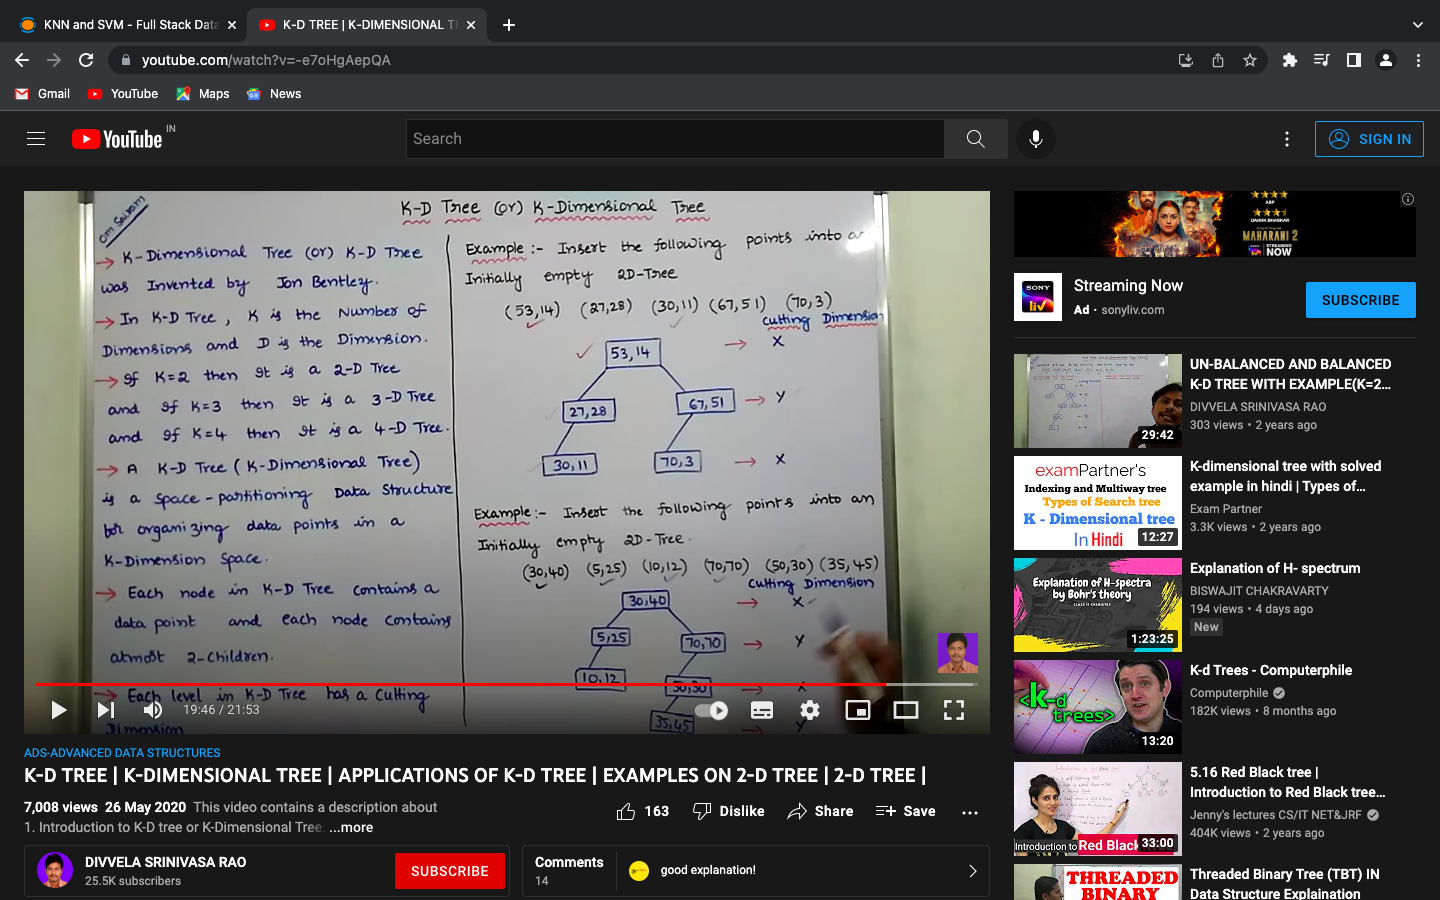 KNN and SVM - Full Stack Data
K-D TREE | K-DIMENSIONAL T
youtube.com/watch?v=-e7oHgAepQA
Gmail
YouTube
Maps
News
YouTube IN
Search
SIGN IN
Om Sairam
K-D Tree (or) K-Dimensional Tree
→ K-Dimensional Tree (or) K-D Tree
was Invented by Jon Bentley.
→ In K-D Tree, K is the Number of
Dimensions and D is the Dimension.
→ If K=2 then It is a 2-D Tree
and If K=3 then It is a 3-D Tree
and If K=4 then It is a 4-D Tree.
→ A K-D Tree (K-Dimensional Tree)
is a space-partitioning Data Structure
for organizing data points in a
K-Dimension Space.
→ Each node in K-D Tree contains a
data point and each node contains
atmost 2-children.
→ Each level in K-D Tree has a cutting
Dimension
Example :- Insert the following points into an
Initially empty 2D-Tree
(53,14) (27,28) (30,11) (67,51) (70,3)
Cutting Dimension
53,14 → X
27,28 67,51 → Y
30,11 70,3 → X
Example :- Insert the following points into an
Initially empty 2D-Tree.
(30,40) (5,25) (10,12) (70,70) (50,30) (35,45)
Cutting Dimension
30,40 → X
5,25 70,70 → Y
10,12 50,30 → X
35,45 → Y
19:46 / 21:53
ADS-ADVANCED DATA STRUCTURES
K-D TREE | K-DIMENSIONAL TREE | APPLICATIONS OF K-D TREE | EXAMPLES ON 2-D TREE | 2-D TREE |
7,008 views 26 May 2020 This video contains a description about
1. Introduction to K-D tree or K-Dimensional Tree. ...more
163
Dislike
Share
Save
DIVVELA SRINIVASA RAO
25.5K subscribers
SUBSCRIBE
Comments
14
good explanation!
ABP
DAINIK BHASKAR
MAHARANI 2
STREAMING
NOW
SONY
liv
Streaming Now
Ad · sonyliv.com
SUBSCRIBE
29:42
UN-BALANCED AND BALANCED
K-D TREE WITH EXAMPLE(K=2...
DIVVELA SRINIVASA RAO
303 views • 2 years ago
examPartner's
Indexing and Multiway tree
Types of Search tree
K - Dimensional tree
In Hindi
12:27
K-dimensional tree with solved
example in hindi | Types of...
Exam Partner
3.3K views • 2 years ago
Explanation of H-spectra
by Bohr's theory
CLASS 11 CHEMISTRY
1:23:25
Explanation of H- spectrum
BISWAJIT CHAKRAVARTY
194 views • 4 days ago
New
<k-d
trees>
13:20
K-d Trees - Computerphile
Computerphile
182K views • 8 months ago
Introduction to Red Black
33:00
5.16 Red Black tree |
Introduction to Red Black tree...
Jenny's lectures CS/IT NET&JRF
404K views • 2 years ago
THREADED
BINARY
Threaded Binary Tree (TBT) IN
Data Structure Explaination